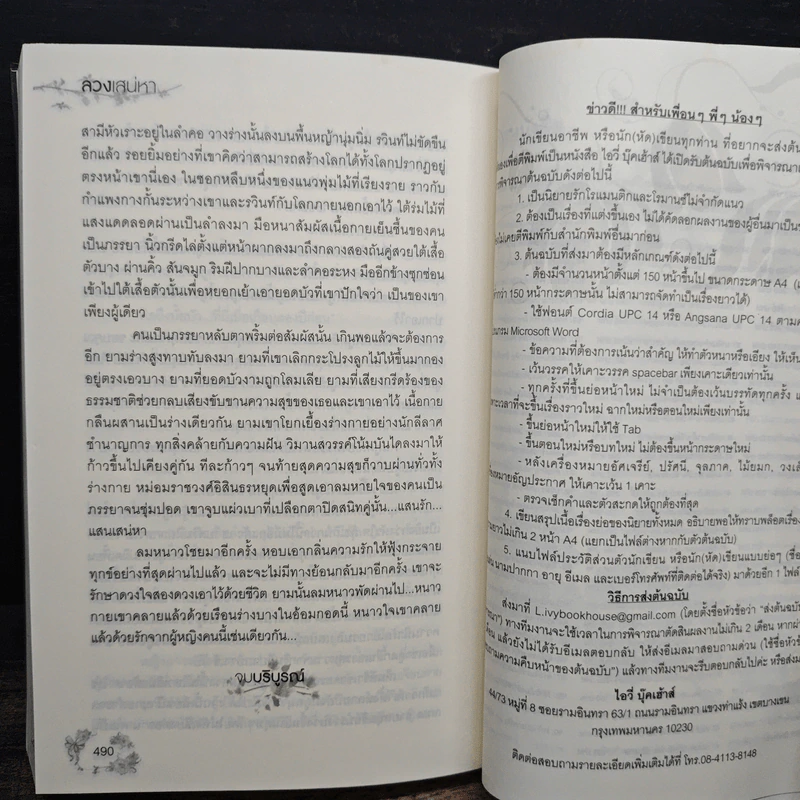 ลวงเสน่หา
สามีหัวเราะอยู่ในลำคอ วางร่างนั้นลงบนพื้นหญ้านุ่มนิ่ม รวินท์ไม่ขัดขืน
อีกแล้ว รอยยิ้มอย่างที่เขาคิดว่าสามารถสร้างโลกได้ทั้งโลกปรากฏอยู่
ตรงหน้าเขานี่เอง ในซอกหลืบหนึ่งของแนวพุ่มไม้ที่เรียงราย ราวกับ
กำแพงกางกั้นระหว่างเขาและรวินท์กับโลกภายนอกเอาไว้ ใต้ร่มไม้ที่
แสงแดดลอดผ่านเป็นลำลงมา มือหนาสัมผัสเนื้อกายเย็นชื้นของคน
เป็นภรรยา นิ้วกรีดไล่ตั้งแต่หน้าผากลงมาถึงกลางสองถันคู่สวยใต้เสื้อ
ตัวบาง ผ่านคิ้ว สันจมูก ริมฝีปากบางและลำคอระหง มืออีกข้างซุกซ่อน
เข้าไปใต้เสื้อตัวนั้นเพื่อหยอกเย้าเอายอดบัวที่เขาปักใจว่า เป็นของเขา
เพียงผู้เดียว
คนเป็นภรรยาหลับตาพริ้มต่อสัมผัสนั้น เกินพอแล้วจะต้องการ
อีก ยามร่างสูงทาบทับลงมา ยามที่เขาเลิกกระโปรงลูกไม้ให้ขึ้นมากอง
อยู่ตรงเอวบาง ยามที่ยอดบัวงามถูกโลมเลีย ยามที่เสียงกรีดร้องของ
ธรรมชาติช่วยกลบเสียงขับขานความสุขของเธอและเขาเอาไว้ เนื้อกาย
กลืนผสานเป็นร่างเดียวกัน ยามเขาโยกเยื้องร่างกายอย่างนักลีลาศ
ชำนาญการ ทุกสิ่งคล้ายกับความฝัน วิมานสวรรค์โน้มบันไดลงมาให้
ก้าวขึ้นไปเคียงคู่กัน ทีละก้าวๆ จนท้ายสุดความสุขก็วาบผ่านทั่วทั้ง
ร่างกาย หม่อมราชวงศ์อิสินธรหยุดเพื่อสูดเอาลมหายใจของคนเป็น
ภรรยาจนชุ่มปอด เขาจูบแผ่วเบาที่เปลือกตาปิดสนิทคู่นั้น...แสนรัก...
แสนเสน่หา
ลมหนาวโชยมาอีกครั้ง หอบเอากลิ่นความรักให้ฟุ้งกระจาย
ทุกข์อย่างที่สุดผ่านไปแล้ว และจะไม่มีทางย้อนกลับมาอีกครั้ง เขาจะ
รักษาดวงใจสองดวงเอาไว้ด้วยชีวิต ยามนั้นลมหนาวพัดผ่านไป...หนาว
กายเขาคลายแล้วด้วยเรือนร่างบางในอ้อมกอดนี้ หนาวใจเขาคลาย
แล้วด้วยรักจากผู้หญิงคนนี้เช่นเดียวกัน...
จบบริบูรณ์
490
ข่าวดี!!! สำหรับเพื่อนๆ พี่ๆ น้องๆ
นักเขียนอาชีพ หรือนัก(หัด)เขียนทุกท่าน ที่อยากจะส่งต้น
เพื่อตีพิมพ์เป็นหนังสือ ไอวี่ บุ๊คเฮ้าส์ ได้เปิดรับต้นฉบับเพื่อพิจารณา
พิจารณาต้นฉบับดังต่อไปนี้
1. เป็นนิยายรักโรแมนติกและโรมานซ์ไม่จำกัดแนว
2. ต้องเป็นเรื่องที่แต่งขึ้นเอง ไม่ได้คัดลอกผลงานของผู้อื่นมาเป็น
ไม่เคยตีพิมพ์กับสำนักพิมพ์อื่นมาก่อน
3. ต้นฉบับที่ส่งมาต้องมีหลักเกณฑ์ดังต่อไปนี้
- ต้องมีจำนวนหน้าตั้งแต่ 150 หน้าขึ้นไป ขนาดกระดาษ A4
กว่า 150 หน้ากระดาษนั้น ไม่สามารถจัดทำเป็นเรื่องยาวได้)
- ใช้ฟอนต์ Cordia UPC 14 หรือ Angsana UPC 14 ตาม
Microsoft Word
- ข้อความที่ต้องการเน้นว่าสำคัญ ให้ทำตัวหนาหรือเอียง ให้เห็น
- เว้นวรรคให้เคาะวรรค spacebar เพียงเคาะเดียวเท่านั้น
- ทุกครั้งที่ขึ้นย่อหน้าใหม่ ไม่จำเป็นต้องเว้นบรรทัดทุกครั้ง
เวลาที่จะขึ้นเรื่องราวใหม่ ฉากใหม่หรือตอนใหม่เพียงเท่านั้น
- ขึ้นย่อหน้าใหม่ให้ใช้ Tab
- ขึ้นตอนใหม่หรือบทใหม่ ไม่ต้องขึ้นหน้ากระดาษใหม่
- หลังเครื่องหมายอัศเจรีย์, ปรัศนี, จุลภาค, ไม้ยมก, วงเล็
หมายอัญประกาศ ให้เคาะเว้น 1 เคาะ
- ตรวจเช็กคำและตัวสะกดให้ถูกต้องที่สุด
4. เขียนสรุปเนื้อเรื่องย่อของนิยายทั้งหมด อธิบายพอให้ทราบพล็อตเรื่อง
ไม่เกิน 2 หน้า A4 (แยกเป็นไฟล์ต่างหากกับตัวต้นฉบับ)
5. แนบไฟล์ประวัติส่วนตัวนักเขียน หรือนัก(หัด)เขียนแบบย่อๆ (ชื่อ
นามปากกา อายุ อีเมล และเบอร์โทรศัพท์ที่ติดต่อได้จริง) มาด้วยอีก 1 ไฟล์
วิธีการส่งต้นฉบับ
ส่งมาที่ L.ivybookhouse@gmail.com (โดยตั้งชื่อหัวข้อว่า "ส่งต้นฉบับ
ทางทีมงานจะใช้เวลาในการพิจารณาตัดสินผลงานไม่เกิน 2 เดือน หาก
แล้วยังไม่ได้รับอีเมลตอบกลับ ให้ส่งอีเมลมาสอบถามด่วน (ใช้ชื่อหัวข้
ถามความคืบหน้าของต้นฉบับ") แล้วทางทีมงานจะรีบตอบกลับไปค่ะ หรือส่งม
ไอวี่ บุ๊คเฮ้าส์
44/73 หมู่ที่ 8 ซอยรามอินทรา 63/1 ถนนรามอินทรา แขวงท่าแร้ง เขตบางเขน
กรุงเทพมหานคร 10230
ติดต่อสอบถามรายละเอียดเพิ่มเติมได้ที่ โทร.08-4113-8148